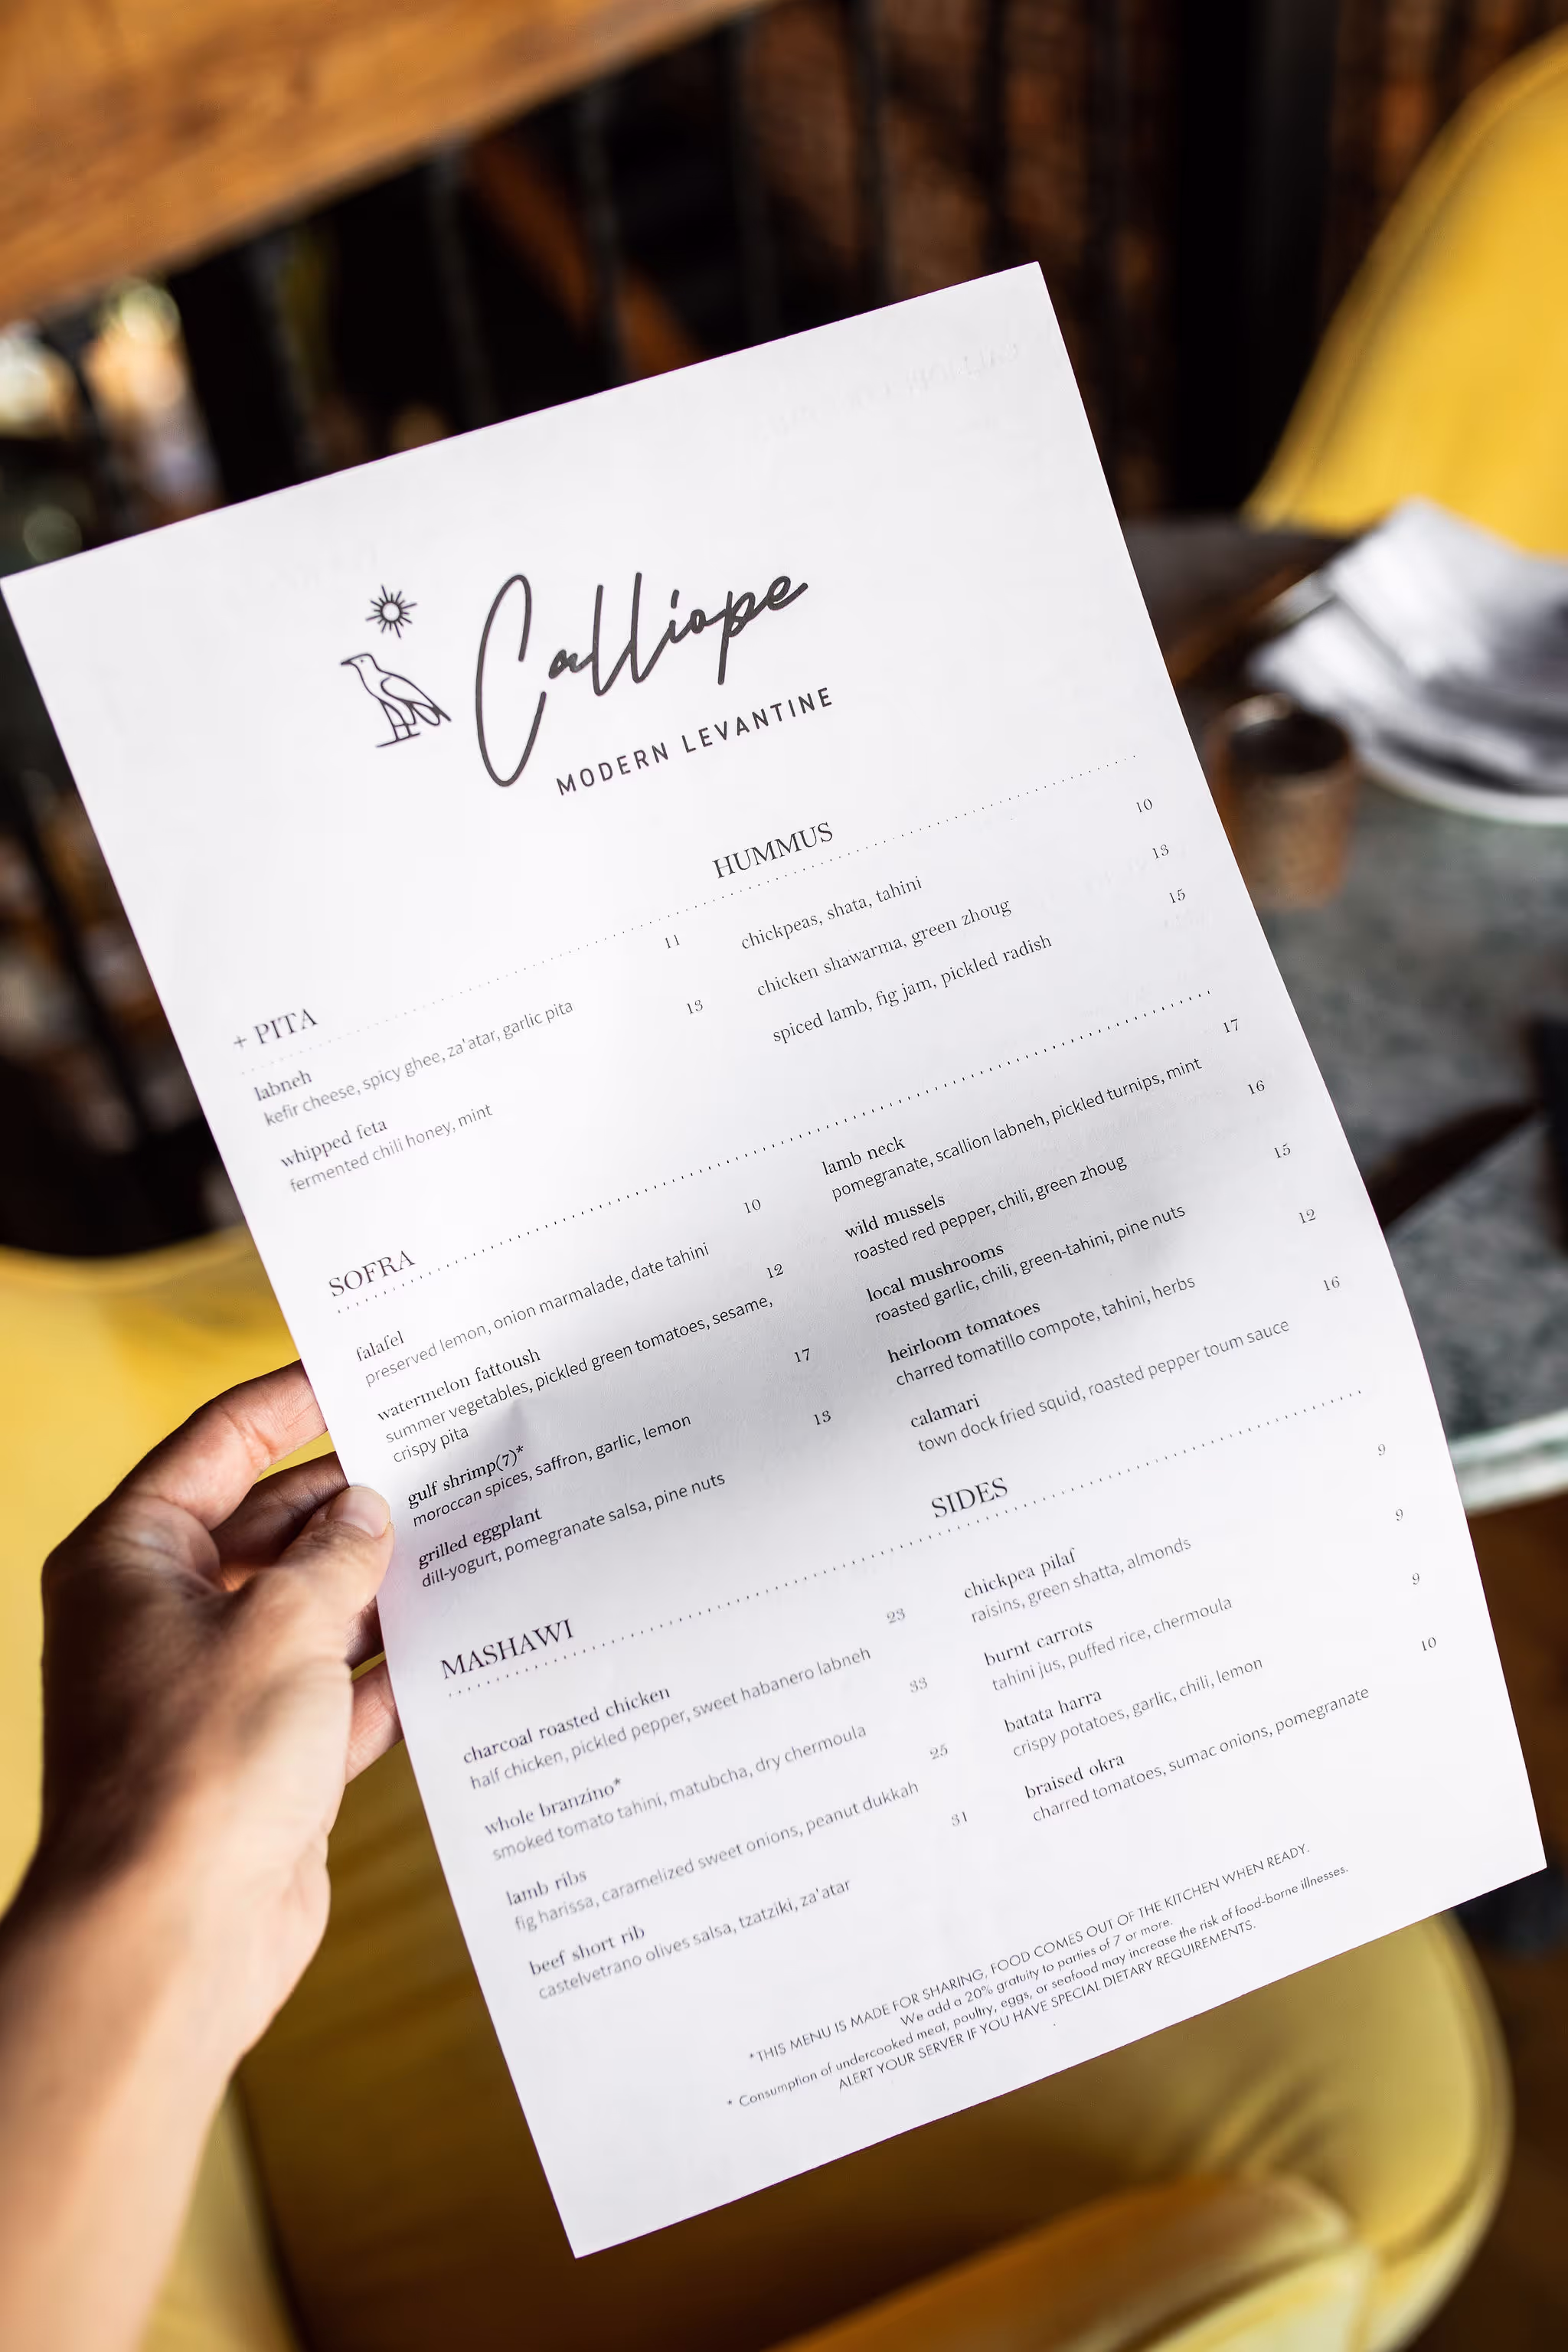 Calliope
MODERN LEVANTINE
+ PITA
labneh 11
kefir cheese, spicy ghee, za'atar, garlic pita
whipped feta 13
fermented chili honey, mint
HUMMUS
chickpeas, shata, tahini 10
chicken shawarma, green zhoug 13
spiced lamb, fig jam, pickled radish 15
SOFRA
falafel 10
preserved lemon, onion marmalade, date tahini
watermelon fattoush 12
summer vegetables, pickled green tomatoes, sesame,
crispy pita
gulf shrimp(7)* 17
moroccan spices, saffron, garlic, lemon
grilled eggplant 13
dill-yogurt, pomegranate salsa, pine nuts
lamb neck 17
pomegranate, scallion labneh, pickled turnips, mint
wild mussels 16
roasted red pepper, chili, green zhoug
local mushrooms 15
roasted garlic, chili, green-tahini, pine nuts
heirloom tomatoes 12
charred tomatillo compote, tahini, herbs
calamari 16
town dock fried squid, roasted pepper toum sauce
MASHAWI
charcoal roasted chicken 23
half chicken, pickled pepper, sweet habanero labneh
whole branzino* 33
smoked tomato tahini, matubcha, dry chermoula
lamb ribs 25
fig harissa, caramelized sweet onions, peanut dukkah
beef short rib 31
castelvetrano olives salsa, tzatziki, za'atar
SIDES
chickpea pilaf 9
raisins, green shatta, almonds
burnt carrots 9
tahini jus, puffed rice, chermoula
batata harra 9
crispy potatoes, garlic, chili, lemon
braised okra 10
charred tomatoes, sumac onions, pomegranate
*THIS MENU IS MADE FOR SHARING, FOOD COMES OUT OF THE KITCHEN WHEN READY.
We add a 20% gratuity to parties of 7 or more.
* Consumption of undercooked meat, poultry, eggs, or seafood may increase the risk of food-borne illnesses.
ALERT YOUR SERVER IF YOU HAVE SPECIAL DIETARY REQUIREMENTS.